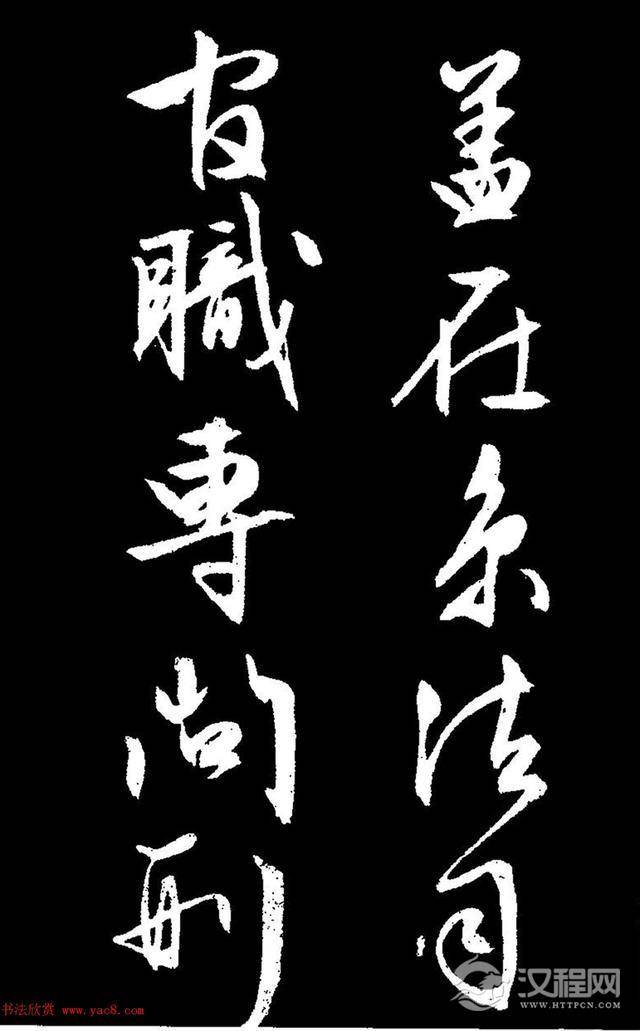 盖在京法司
官職專尚刑
书法欣赏 www.yac8.com
汉程网
WWW.HTTPCN.COM